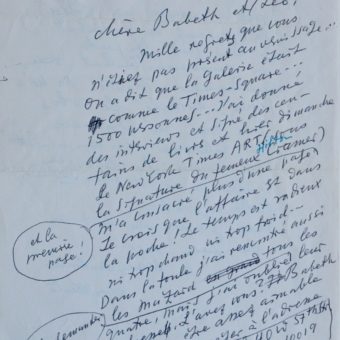 chère Babeth et Leo,
Mille regrets que vous
n'étiez pas présent au vernissage...
on a dit que la Galerie était
comme le Times-Square...
1500 personnes... J'ai donné
des interviews et signé des cen-
tains de livres et hier dimanche
le New York Times ART (sous
la signature du fameux Cramer)
m'a consacré plus d'une page
Je crois que l'affaire est dans
la poche! Le temps est radieux
et la
première
page!
ni trop chaud ni trop froid -
Dans la foule j'ai rencontré aussi
les tous les
quatre, mais j'ai oublié leur
demander
l'avez vous? Babeth
être assez aimable
à l'adresse
40 W 57th St
10019